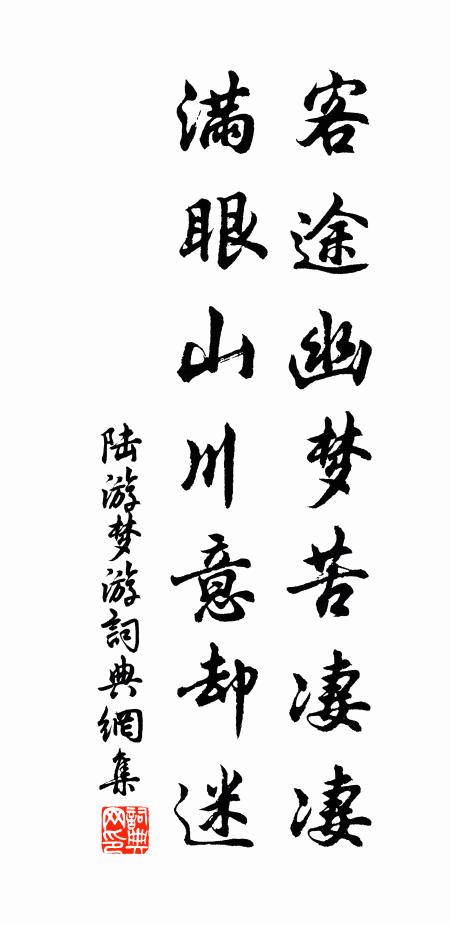 客途幽梦苦凄凄
满眼山川意却迷
陆游梦游詞典網集
詞典網印